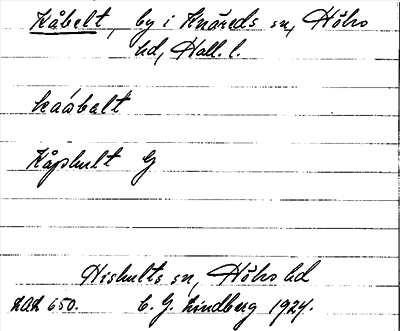 Kåbelt, by i Knäreds sn, Höks
hd, Hall. l.
kaábalt
Kåphult G
Hishults sn, Höks hd
KAK 650. C. G. Lindberg 1924.